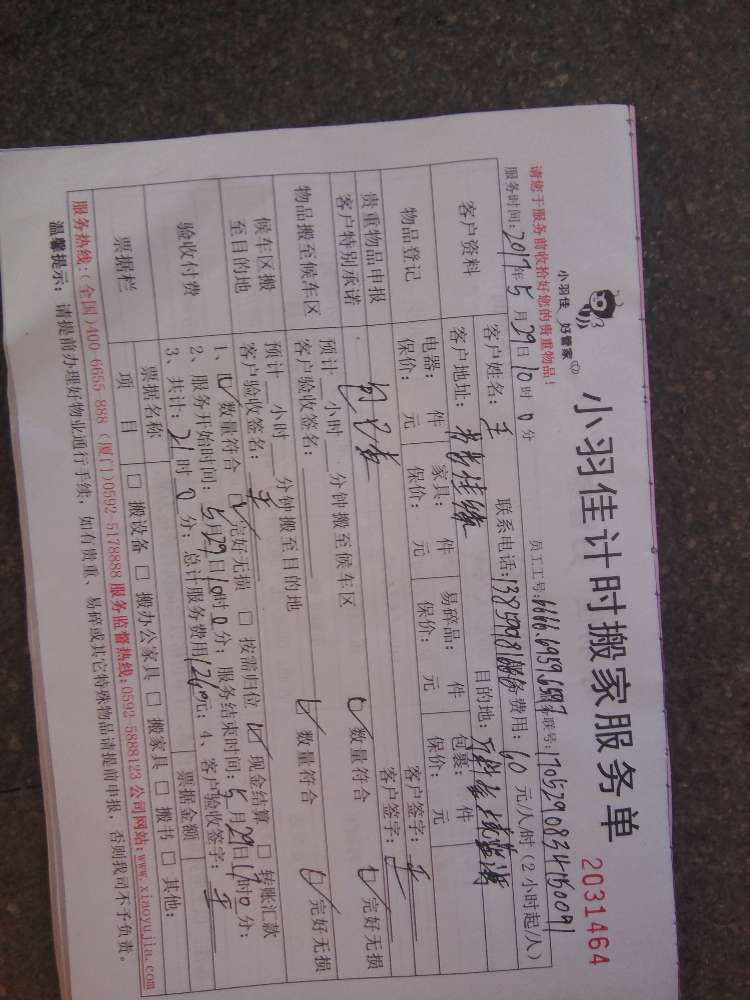 小羽佳 好管家
小羽佳计时搬家服务单
2031464
请您于服务前收拾好您的贵重物品!
员工工号:6666.6959.6587 车联号:1705290834150091
服务时间:2017年5月29日10时0分
服务费用:60元/人/时(2小时起/人)
客户资料
客户姓名:王
联系电话:
客户地址:
目的地:
物品登记
电器: 件 家具: 件 易碎品: 件 包裹: 件
保价: 元 保价: 元 保价: 元 保价: 元
贵重物品申报
客户签字:王
客户特别承诺
客户签字:
物品搬至候车区
预计 小时 分钟搬至候车区 数量符合 完好无损
客户验收签名:
候车区搬至目的地
预计 小时 分钟搬至目的地 数量符合 完好无损
客户验收签名:王
验收付费
1、数量符合 完好无损 □ 按需归位 现金结算 □ 转账汇款
2、服务开始时间:5月29日10时0分;服务结束时间:5月29日 时0分;
3、共计:21时0分;总计服务费用1260元;4、客户验收签字:王
票据栏
票据名称 票据金额
项目 □ 搬设备 □ 搬办公家具 □ 搬家具 □ 搬书 □ 其他:
服务热线:(全国)400-6655-888 (厦门)0592-5178888 服务监督热线:0592-5888123 公司网站:www.xiaoyujia.com
温馨提示:请提前办理好物业通行手续,如有贵重、易碎或其它特殊物品请提前申报,否则我司不予负责。